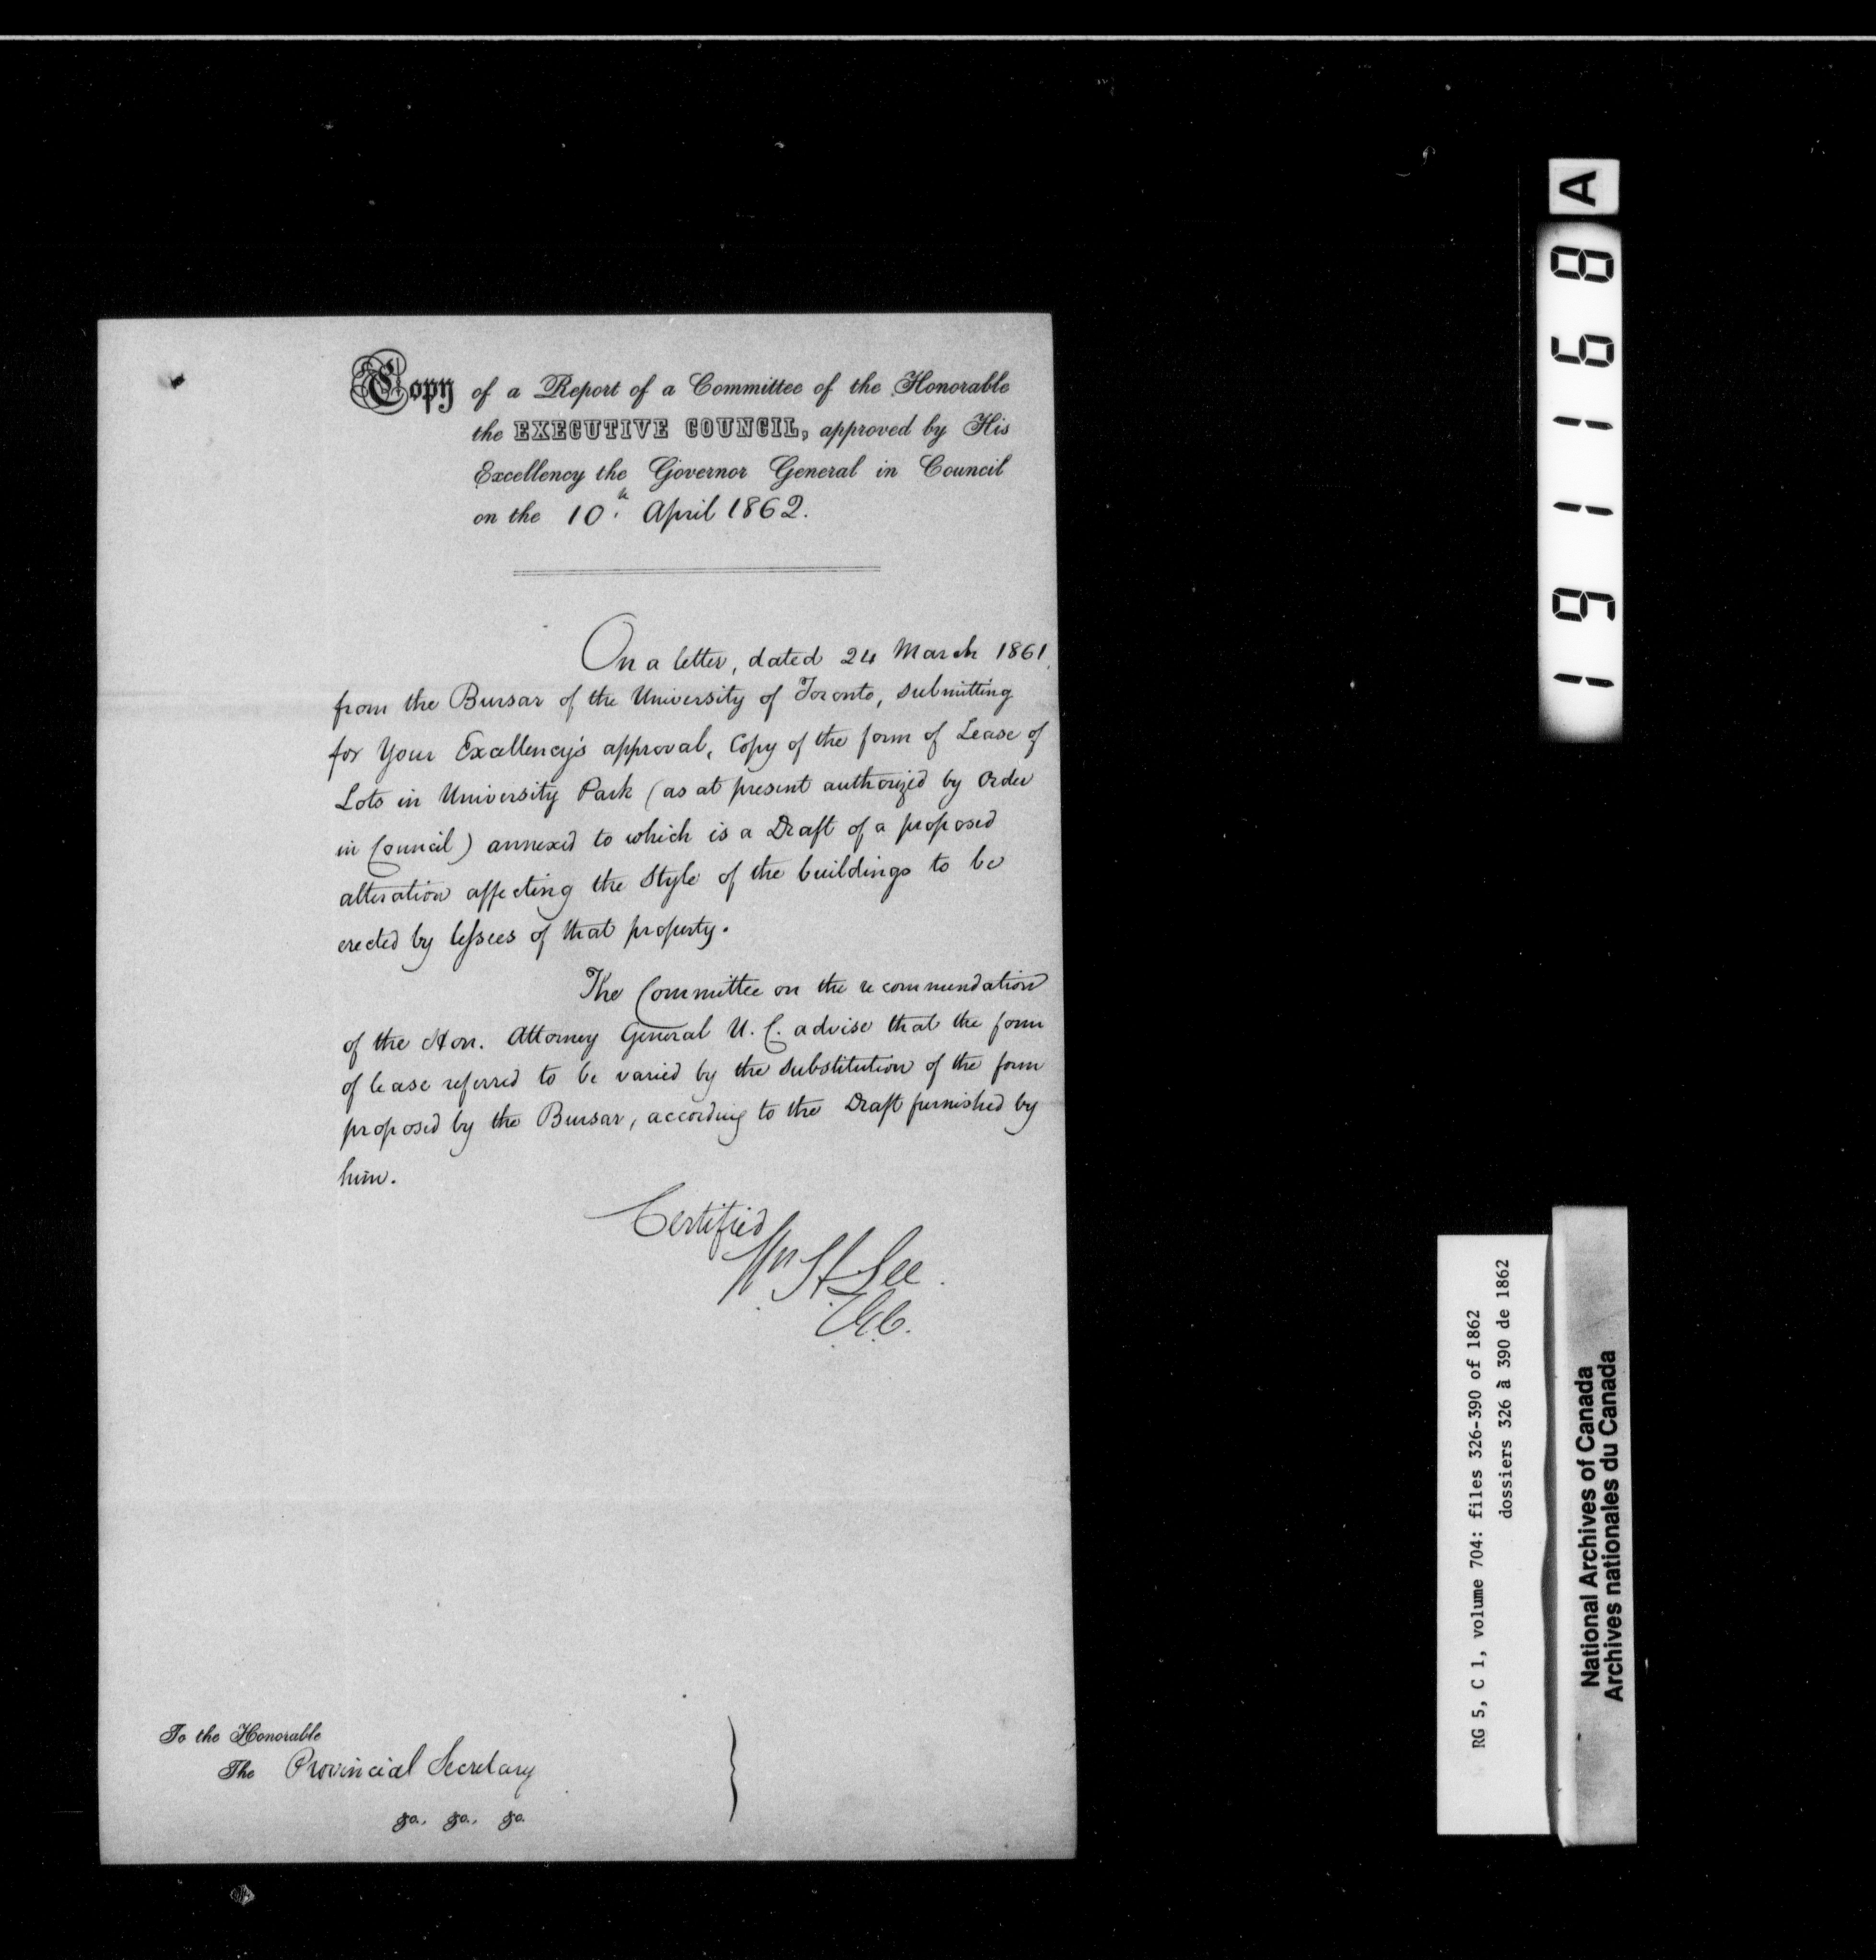 Copy of a Report of a Committee of the Honorable
the EXECUTIVE COUNCIL, approved by His
Excellency the Governor General in Council
on the 10th April 1862.
On a letter, dated 24 March 1861.
from the Bursar of the University of Toronto, submitting
for Your Excellency's approval, Copy of the form of Lease of
Lots in University Park (as at present authorized by Order
in Council) annexed to which is a Draft of a proposed
alteration affecting the Style of the buildings to be
erected by lessees of that property.
The Committee on the recommendation
of the Hon. Attorney General U. C. advise that the form
of lease referred to be varied by the substitution of the form
proposed by the Bursar, according to the Draft furnished by
him.
Certified
Wm H Lee
To the Honorable
The Provincial Secretary
&c., &c., &c.
191168 A
RG 5, C 1, volume 704: files 326-390 of 1862
dossiers 326 à 390 de 1862
National Archives of Canada
Archives nationales du Canada